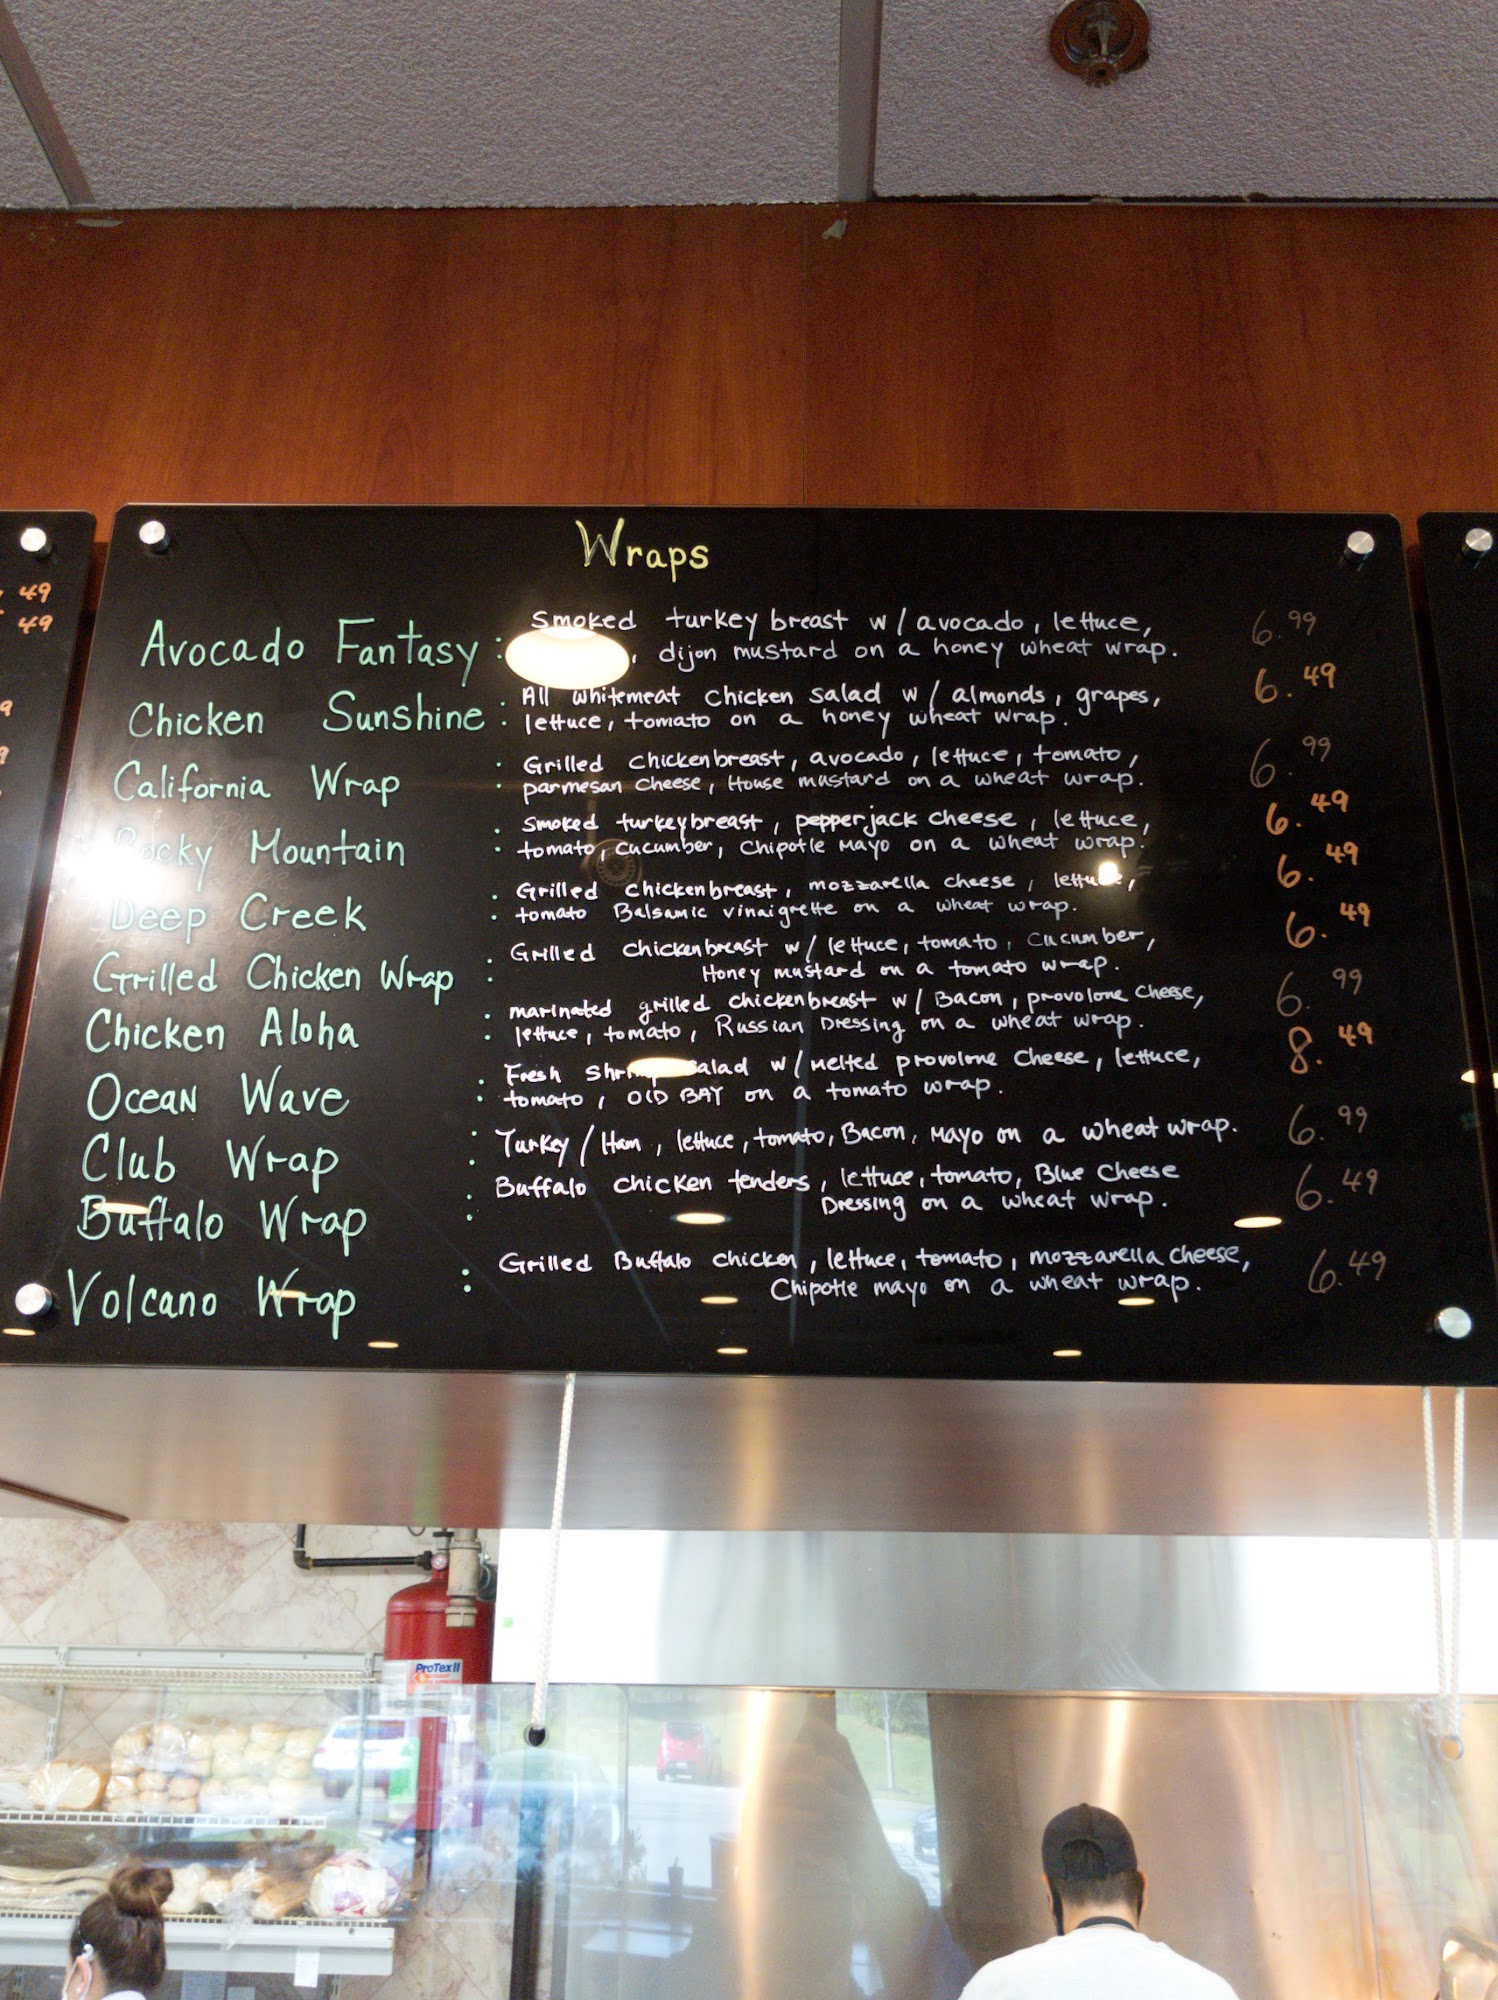 Wraps
49
49
Avocado Fantasy : Smoked turkey breast w/ avocado, lettuce, 6.99
, dijon mustard on a honey wheat wrap.
Chicken Sunshine : All whitemeat chicken salad w/ almonds, grapes, 6.49
lettuce, tomato on a honey wheat wrap.
California Wrap : Grilled chickenbreast, avocado, lettuce, tomato, 6.99
parmesan cheese, House mustard on a wheat wrap.
Rocky Mountain : Smoked turkeybreast, pepperjack cheese, lettuce, 6.49
tomato, cucumber, chipotle mayo on a wheat wrap.
Deep Creek : Grilled chickenbreast, mozzarella cheese, lettuce, 6.49
tomato Balsamic vinaigrette on a wheat wrap.
Grilled Chicken Wrap : Grilled chickenbreast w/ lettuce, tomato, cucumber, 6.49
Honey mustard on a tomato wrap.
Chicken Aloha : marinated grilled chickenbreast w/ Bacon, provolone cheese, 6.99
lettuce, tomato, Russian Dressing on a wheat wrap.
Ocean Wave : Fresh shrimp salad w/ melted provolone cheese, lettuce, 8.49
tomato, OLD BAY on a tomato wrap.
Club Wrap : Turkey/Ham, lettuce, tomato, Bacon, Mayo on a wheat wrap. 6.99
Buffalo Wrap : Buffalo chicken tenders, lettuce, tomato, Blue Cheese 6.49
Dressing on a wheat wrap.
Volcano Wrap : Grilled Buffalo chicken, lettuce, tomato, mozzarella cheese, 6.49
Chipotle mayo on a wheat wrap.
ProTex II